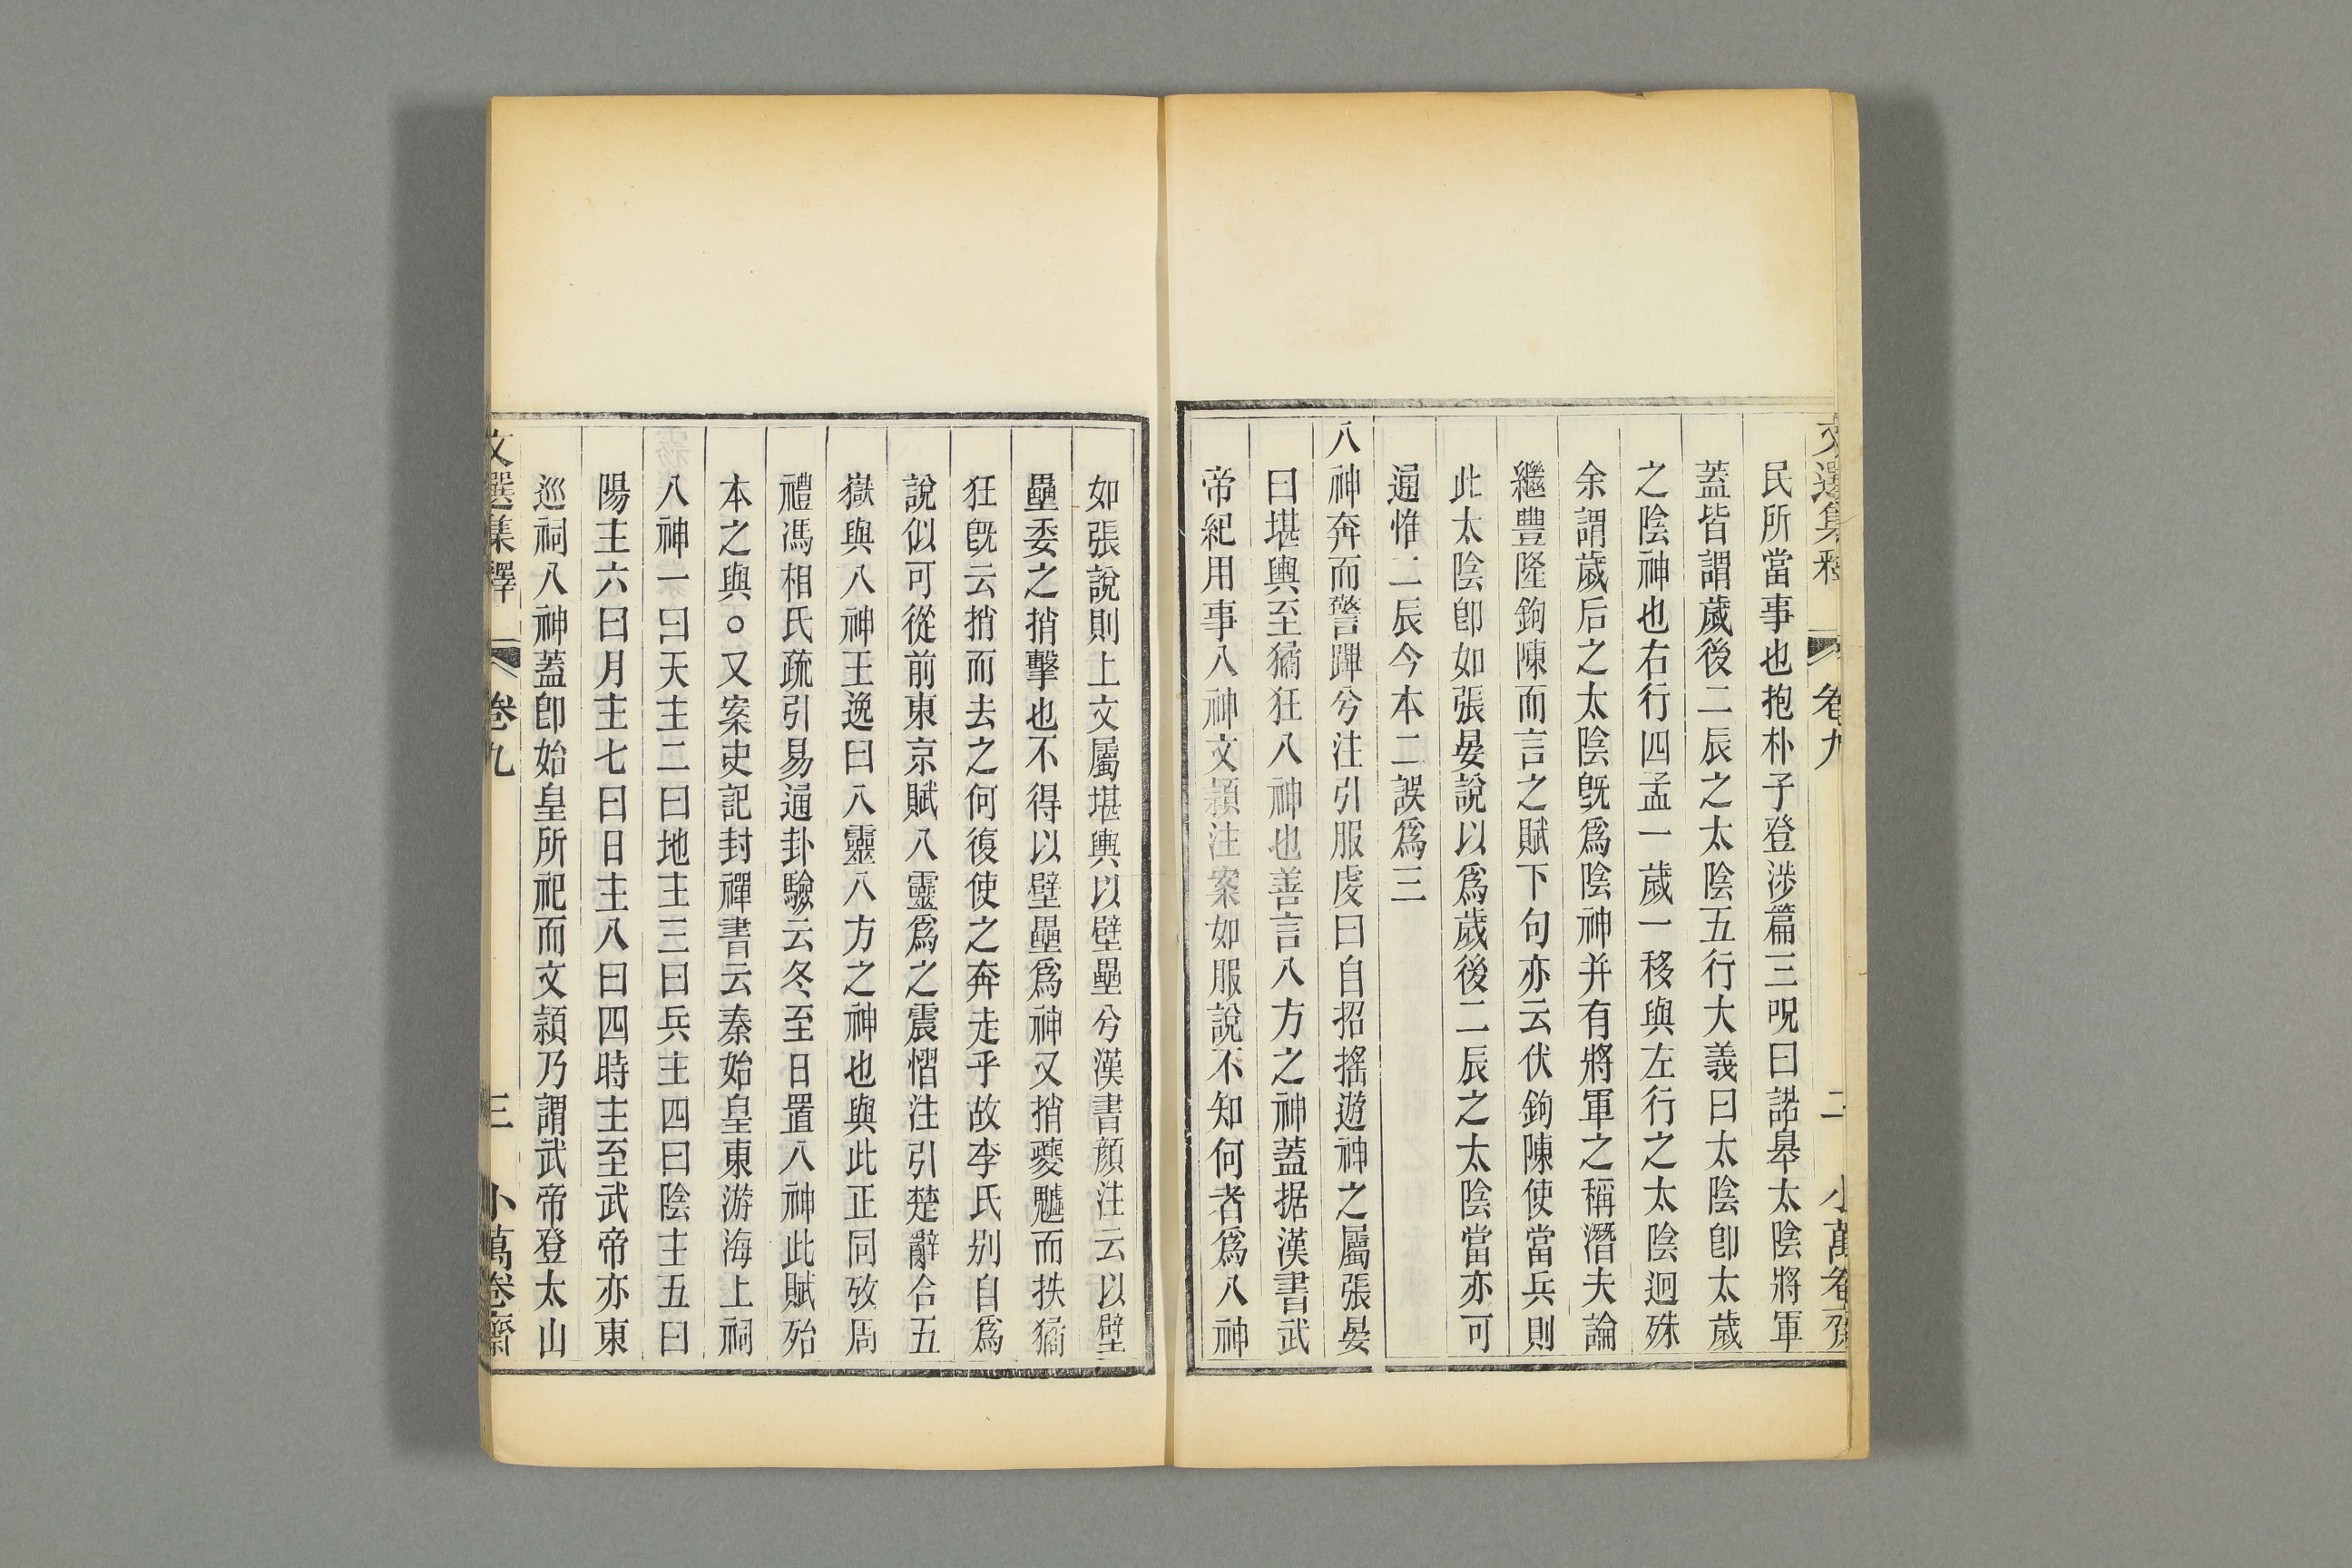 文選集釋 卷九 二 小萬卷齋
民所當事也抱朴子登涉篇三呪曰諾皋太陰將軍
蓋皆謂歲後二辰之太陰五行大義曰太陰卽太歲
之陰神也右行四孟一歲一移與左行之太陰迥殊
余謂歲后之太陰旣爲陰神并有將軍之稱潛夫論
繼豐隆鉤陳而言之賦下句亦云伏鉤陳使當兵則
此太陰卽如張晏說以爲歲後二辰之太陰當亦可
通惟二辰今本二誤爲三
八神奔而警蹕兮注引服虔曰自招搖遊神之屬張晏
曰堪輿至獝狂八神也善言八方之神蓋据漢書武
帝紀用事八神文穎注案如服說不知何者爲八神
如張說則上文屬堪輿以壁壘兮漢書顏注云以壁
壘委之捎擊也不得以壁壘爲神又捎夔魖而抶獝
狂旣云捎而去之何復使之奔走乎故李氏别自爲
說似可從前東京賦八靈爲之震慴注引楚辭合五
嶽與八神王逸曰八靈八方之神也與此正同攷周
禮馮相氏疏引易通卦驗云冬至日置八神此賦殆
本之與○又案史記封禪書云秦始皇東游海上祠
八神一曰天主二曰地主三曰兵主四曰陰主五曰
陽主六曰月主七曰日主八曰四時主至武帝亦東
巡祠八神蓋卽始皇所祀而文穎乃謂武帝登太山
文選集釋 卷九 三 小萬卷齋